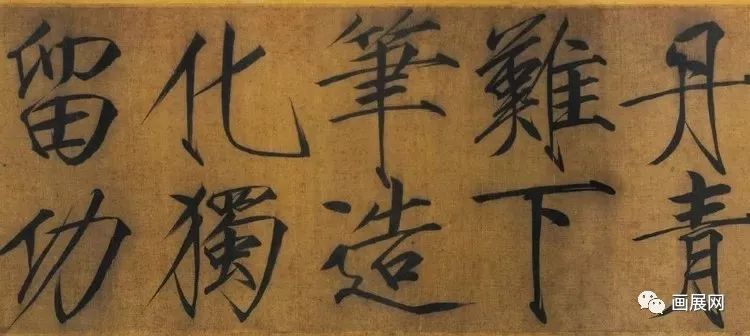 丹青
難下
筆造
化獨
留功
画展网